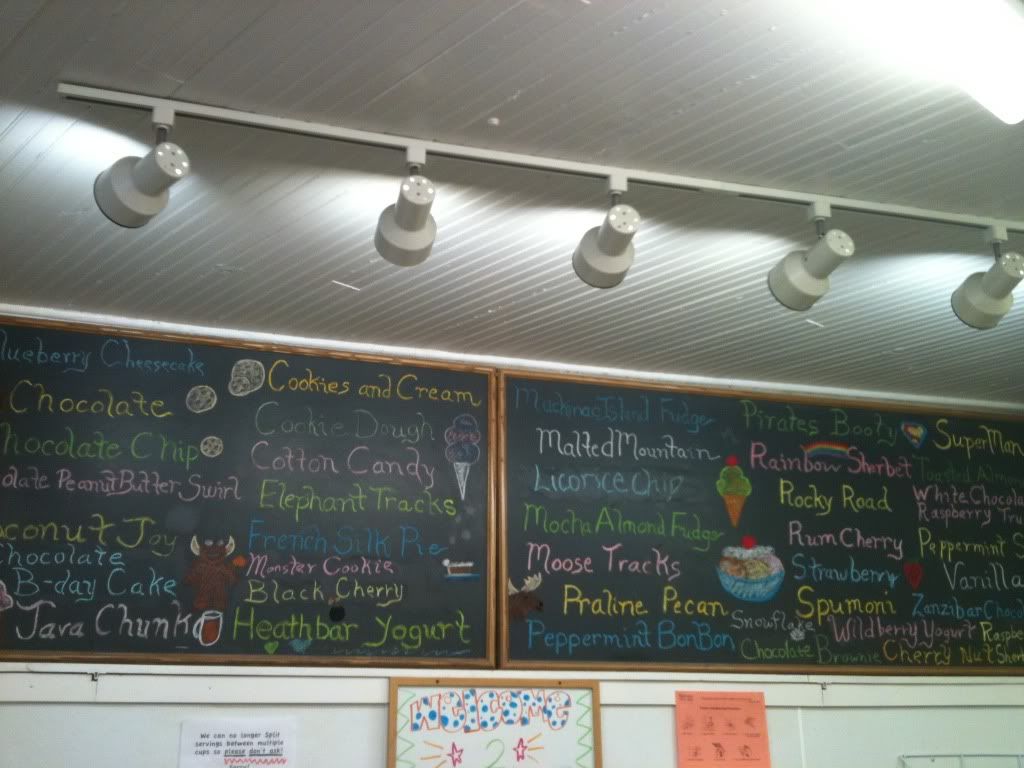 lueberry Cheesecake
Chocolate
hocolate Chip
olate PeanutButter Swirl
oconut Joy
Chocolate
B-day Cake
Java Chunk
Cookies and Cream
Cookie Dough
Cotton Candy
Elephant Tracks
French Silk Pie
Monster Cookie
Black Cherry
Heathbar Yogurt
Mackinac Island Fudge
Malted Mountain
Licorice Chip
Mocha Almond Fudge
Moose Tracks
Praline Pecan
Peppermint BonBon
Pirates Booty
Rainbow Sherbet
Rocky Road
Rum Cherry
Strawberry
Spumoni
Snowflake
Wildberry Yogurt
Chocolate Brownie
SuperMan
Toasted Almon
White Chocola
Raspberry Tru
Peppermint S
Vanilla
Zanzibar Choco
Raspbe
Cherry Nut Sherb
WELCOME
2
We can no longer Split
servings between multiple
cups so please don't ask!